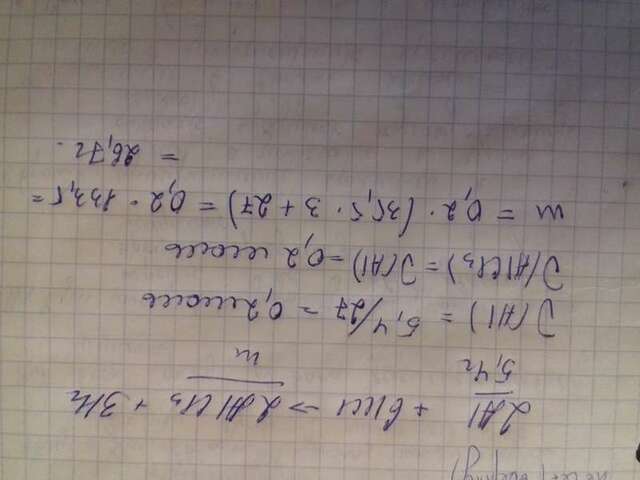 2Al + 6HCl → 2AlCl₃ + 3H₂
5,4г m
ν(Al) = 5,4/27 = 0,2 моль
ν(AlCl₃) = ν(Al) = 0,2 моль
m = 0,2 · (35,5 · 3 + 27) = 0,2 · 133,5 =
= 26,7г.